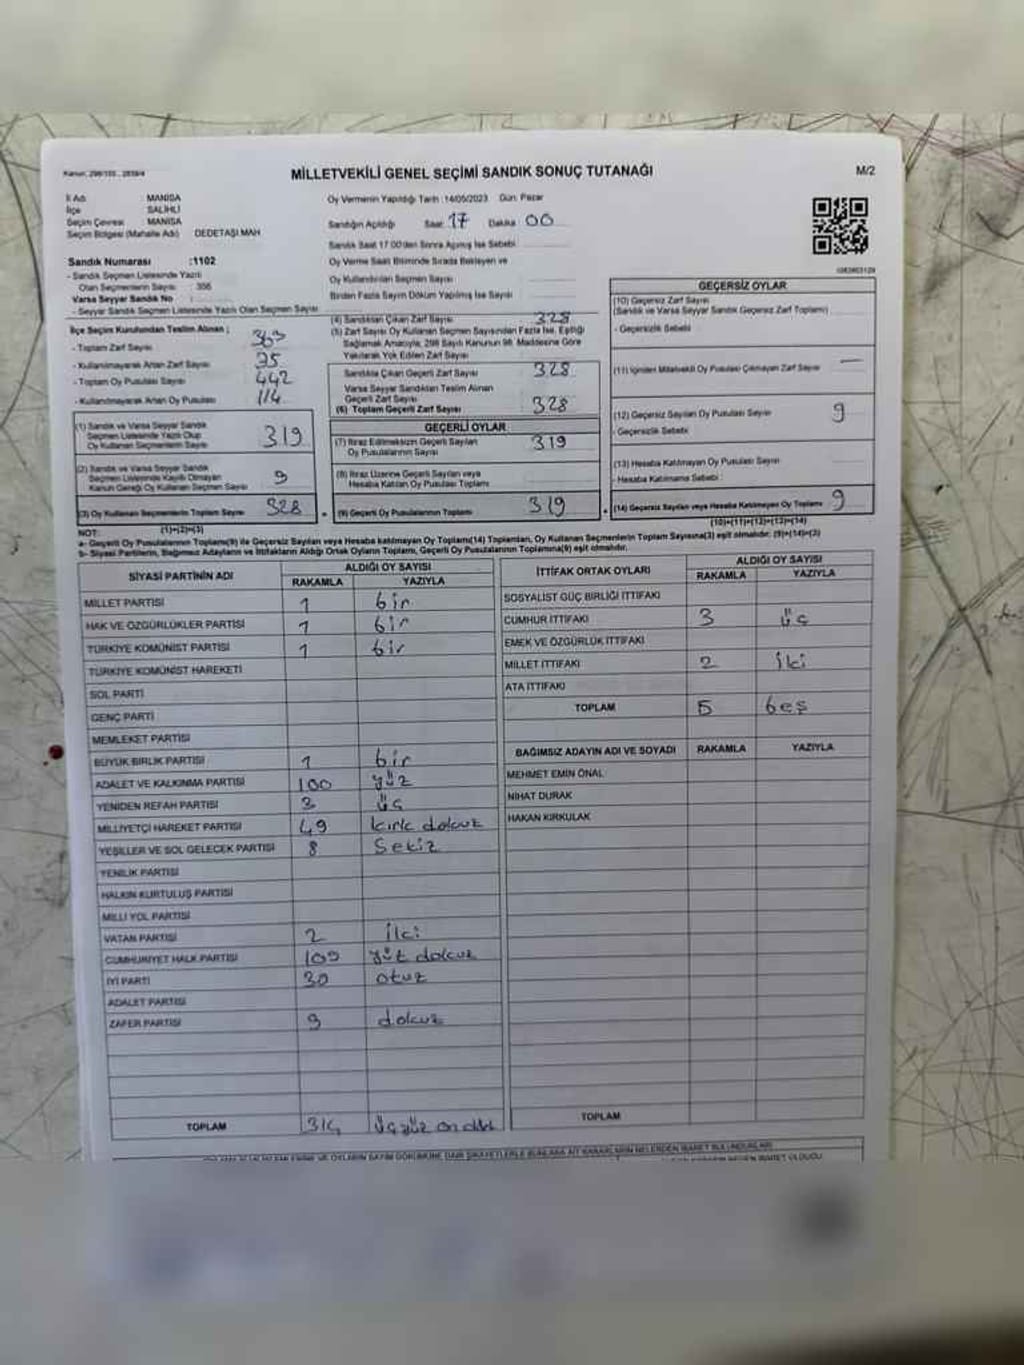 Kanun: 298/105, 2839/4
MİLLETVEKİLİ GENEL SEÇİMİ SANDIK SONUÇ TUTANAĞI
M/2
İl Adı : MANİSA
İlçe : SALİHLİ
Seçim Çevresi : MANİSA
Seçim Bölgesi (Mahalle Adı) DEDETAŞI MAH
Sandık Numarası :1102
- Sandık Seçmen Listesinde Yazılı
Olan Seçmenlerin Sayısı :
Varsa Seyyar Sandık No :
- Seyyar Sandık Seçmen Listesinde Yazılı Olan Seçmen Sayısı
Oy Vermenin Yapıldığı Tarih :14/05/2023 Gün: Pazar
Sandığın Açıldığı Saat: 17 Dakika 00
Sandık Saat 17.00'den Sonra Açılmış İse Sebebi
Oy Verme Saati Bitiminde Sırada Bekleyen ve
Oy Kullandırılan Seçmen Sayısı
Birden Fazla Sayım Döküm Yapılmış İse Sayısı
İlçe Seçim Kurulundan Teslim Alınan ;
- Toplam Zarf Sayısı 363
- Kullanılmayarak Artan Zarf Sayısı 35
- Toplam Oy Pusulası Sayısı 442
- Kullanılmayarak Artan Oy Pusulası 114
(1) Sandık ve Varsa Seyyar Sandık
Seçmen Listesinde Yazılı Olup
Oy Kullanan Seçmenlerin Sayısı 319
(2) Sandık ve Varsa Seyyar Sandık
Seçmen Listesinde Kayıtlı Olmayan
Kanun Gereği Oy Kullanan Seçmen Sayısı 9
(3) Oy Kullanan Seçmenlerin Toplam Sayısı 328
(1)+(2)=(3)
(4) Sandıktan Çıkan Zarf Sayısı 328
(5) Zarf Sayısı Oy Kullanan Seçmen Sayısından Fazla İse, Eşitliği
Sağlamak Amacıyla, 298 Sayılı Kanunun 98. Maddesine Göre
Yakılarak Yok Edilen Zarf Sayısı
Sandıkta Çıkan Geçerli Zarf Sayısı 328
Varsa Seyyar Sandıktan Teslim Alınan
Geçerli Zarf Sayısı
(6) Toplam Geçerli Zarf Sayısı 328
GEÇERLİ OYLAR
(7) İtiraz Edilmeksizin Geçerli Sayılan
Oy Pusulalarının Sayısı 319
(8) İtiraz Üzerine Geçerli Sayılan veya
Hesaba Katılan Oy Pusulası Toplamı
(9) Geçerli Oy Pusulalarının Toplamı 319
GEÇERSİZ OYLAR
(10) Geçersiz Zarf Sayısı
(Sandık ve Varsa Seyyar Sandık Geçersiz Zarf Toplamı)
- Geçersizlik Sebebi
(11) İçinden Milletvekili Oy Pusulası Çıkmayan Zarf Sayısı —
(12) Geçersiz Sayılan Oy Pusulası Sayısı 9
- Geçersizlik Sebebi
(13) Hesaba Katılmayan Oy Pusulası Sayısı
- Hesaba Katılmama Sebebi :
(14) Geçersiz Sayılan veya Hesaba Katılmayan Oy Toplamı 9
(10)+(11)+(12)+(13)=(14)
NOT:
a- Geçerli Oy Pusulalarının Toplamı(9) ile Geçersiz Sayılan veya Hesaba katılmayan Oy Toplamı(14) Toplamları, Oy Kullanan Seçmenlerin Toplam Sayısına(3) eşit olmalıdır. (9)+(14)=(3)
b- Siyasi Partilerin, Bağımsız Adayların ve İttifakların Aldığı Ortak Oyların Toplamı, Geçerli Oy Pusulalarının Toplamına(9) eşit olmalıdır.
SİYASİ PARTİNİN ADI
ALDIĞI OY SAYISI
RAKAMLA YAZIYLA
MİLLET PARTİSİ 1 bir
HAK VE ÖZGÜRLÜKLER PARTİSİ 1 bir
TÜRKİYE KOMÜNİST PARTİSİ 1 bir
TÜRKİYE KOMÜNİST HAREKETİ
SOL PARTİ
GENÇ PARTİ
MEMLEKET PARTİSİ
BÜYÜK BİRLİK PARTİSİ 1 bir
ADALET VE KALKINMA PARTİSİ 100 yüz
YENİDEN REFAH PARTİSİ 3 üç
MİLLİYETÇİ HAREKET PARTİSİ 49 kırk dokuz
YEŞİLLER VE SOL GELECEK PARTİSİ 8 Sekiz
YENİLİK PARTİSİ
HALKIN KURTULUŞ PARTİSİ
MİLLİ YOL PARTİSİ
VATAN PARTİSİ 2 iki
CUMHURİYET HALK PARTİSİ 109 yüz dokuz
İYİ PARTİ 30 otuz
ADALET PARTİSİ
ZAFER PARTİSİ 9 dokuz
TOPLAM 314 üçyüz on dört
İTTİFAK ORTAK OYLARI
ALDIĞI OY SAYISI
RAKAMLA YAZIYLA
SOSYALİST GÜÇ BİRLİĞİ İTTİFAKI
CUMHUR İTTİFAKI 3 üç
EMEK VE ÖZGÜRLÜK İTTİFAKI
MİLLET İTTİFAKI 2 iki
ATA İTTİFAKI
TOPLAM 5 beş
BAĞIMSIZ ADAYIN ADI VE SOYADI RAKAMLA YAZIYLA
MEHMET EMİN ÖNAL
NİHAT DURAK
HAKAN KIRKULAK
TOPLAM